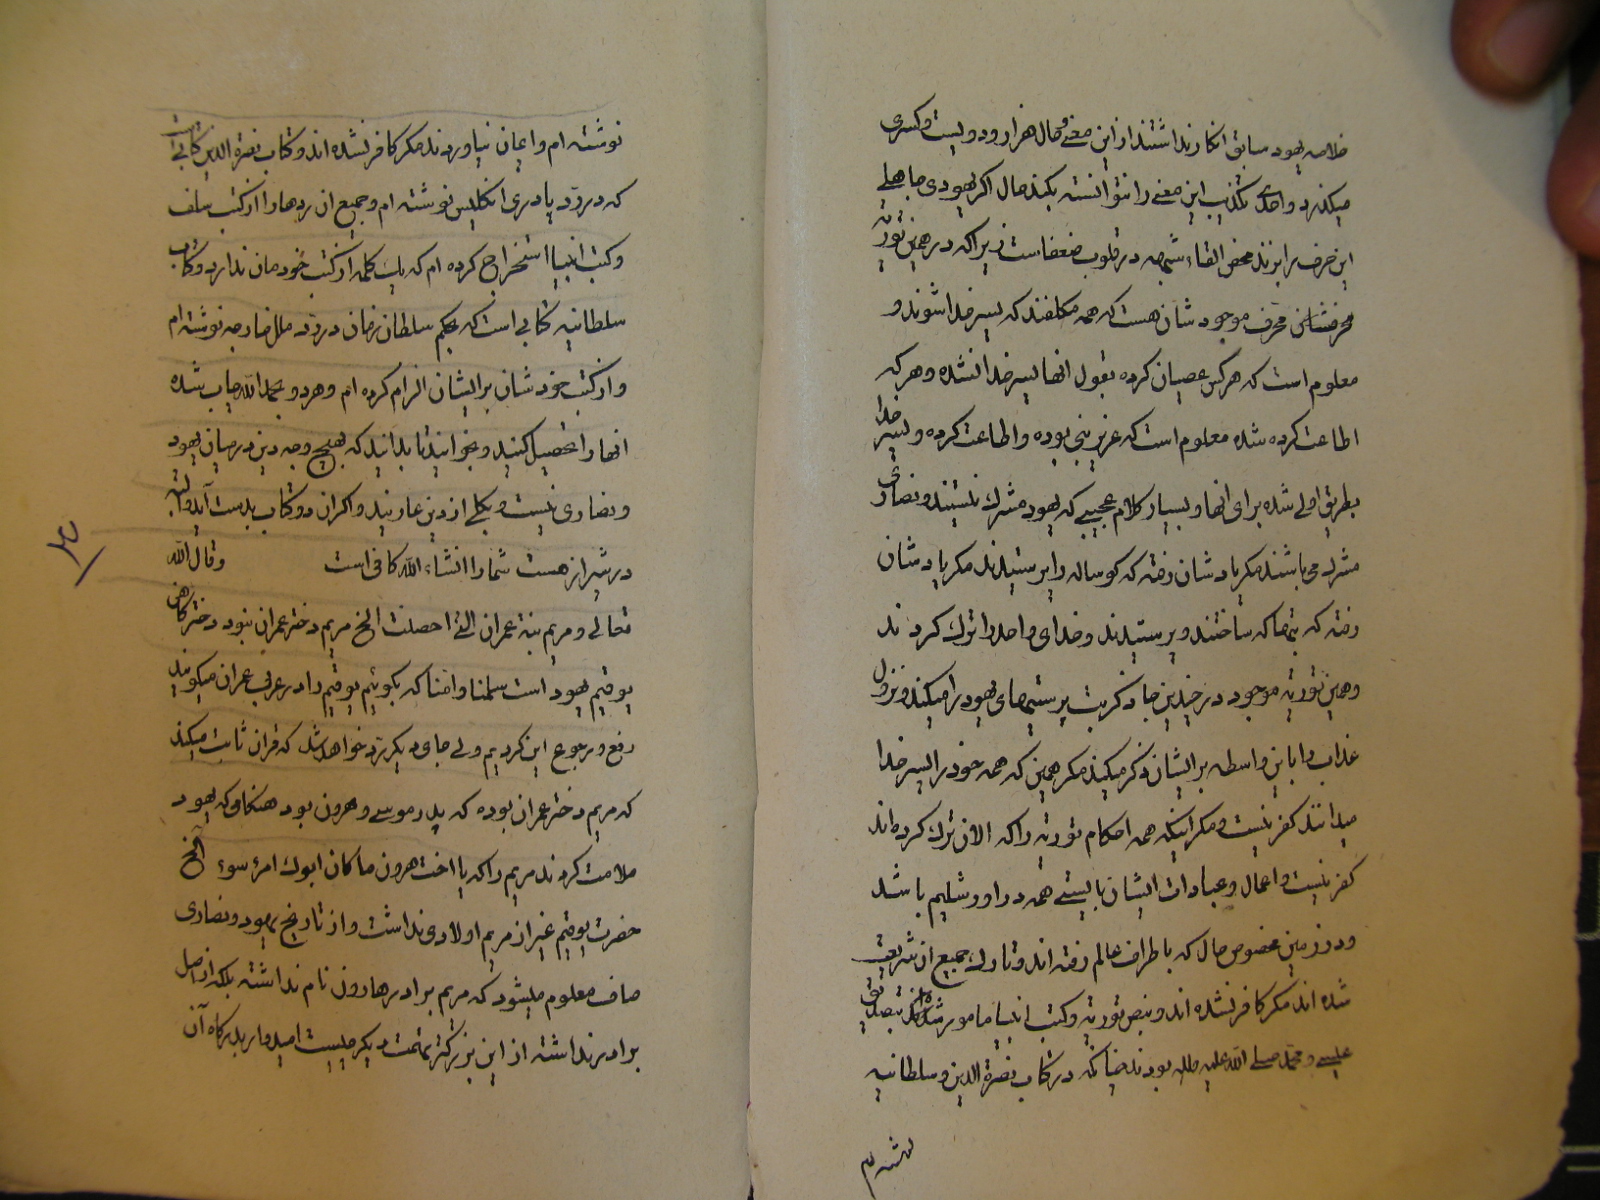 خلاصه یهود سابق انکار نداشتند از این معنی و حال هزار و دویست و کسری
میکذرد و احدی تکذیب این معنی را نتوانسته بکند حال اکر یهودی جاهلی
این حرف را بزند محض القاء شبهه در قلوب ضعفاست زیرا که در همین توریة
محرف موجود شان هست که همه مکلفند که پسر خدا شوند و
معلوم است که هر کس عصیان کرده بقول انها پسر خدا نشده و هر که
اطاعت کرده شده معلوم است که عزیر نبی بوده و اطاعت کرده و پسر خدا
بطریق اولی شده برای انها و بسیار کلام عجیبی که یهود مشرک نیستند و نصاری
مشرک می باشند مکر یادشان رفته که کوساله را پرستیدند مکر یادشان
رفته که بتها که ساختند و پرستیدند و خدای واحد را ترک کردند
و همین توریة موجود در چندین جا ذکر بت پرستیهای یهود را میکند و نزول
عذاب را باین واسطه بر ایشان ذکر میکند مکر همین که همه خود را پسر خدا
میدانند کفر نیست و مکر اینکه همه احکام توریة را که الان ترک کرده اند
کفر نیست و اعمال و عبادات ایشان بایستی همه در اورشلیم باشد
و در زمین مخصوص حال که باطراف عالم رفته اند و تارک جمیع ان شریعت
شده اند مکر کافر نشده اند و بنص توریة و کتب انبیا مامور شده اند بتصدیق
عیسی و محمد صلی الله علیه واله بودند چنانکه در کتاب نصرة الدین و سلطانیه
نوشته ام
نوشته ام و ایمان نیاوردند مکر کافر نشده اند و کتاب نصرة الدین کتابی است
که در رد پادری انکلیس نوشته ام و جمیع ان ردها را از کتب سلف
و کتب انبیا استخراج کرده ام که یک کلمه از کتب خودمان ندارد و کتاب
سلطانیه کتابی است که بحکم سلطان زمان در رد ملل خارجه نوشته ام
و از کتب خودشان بر ایشان الزام کرده ام و هر دو بحمد الله چاپ شده
انها را تحصیل کنید و بخوانید تا بدانید که بهیچ وجه دین در میان یهود
و نصاری نیست و بکلی از دین عاریند و اکر ان دو کتاب بدست آید و البته
در شیراز هست شما را انشاء الله کافی است و قال الله
تعالی و مریم بنة عمران التی احصنت الخ مریم دختر عمران نبود دختر کاهن
یوقیم یهود است سلمنا و امنا که بکوئیم یوقیم را در عربی عمران میکویند
رفع و رجوع این کردیم ولی جای دیکر رد خواهد شد که قران ثابت میکند
که مریم دختر عمران بوده که پدر موسی و هرون بود هنکامی که یهود
ملامت کردند مریم را که یا اخت هرون ما کان ابوک امرء سوء الخ
حضرت یوقیم غیر از مریم اولادی نداشت و از تاریخ یهود و نصاری
صاف معلوم میشود که مریم برادر هارون نام نداشته بلکه از اصل
برادر نداشته از این بزرکتر تهمت دیکر چیست امیدوار بدرکاه آن